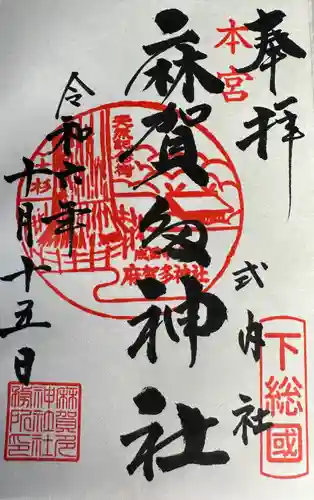 奉拝
本宮
下総國
式内社
麻賀多神社
天然記念物
大杉
成田市
麻賀多神社
令和六年
十月十五日
麻賀多
神社社
務所印